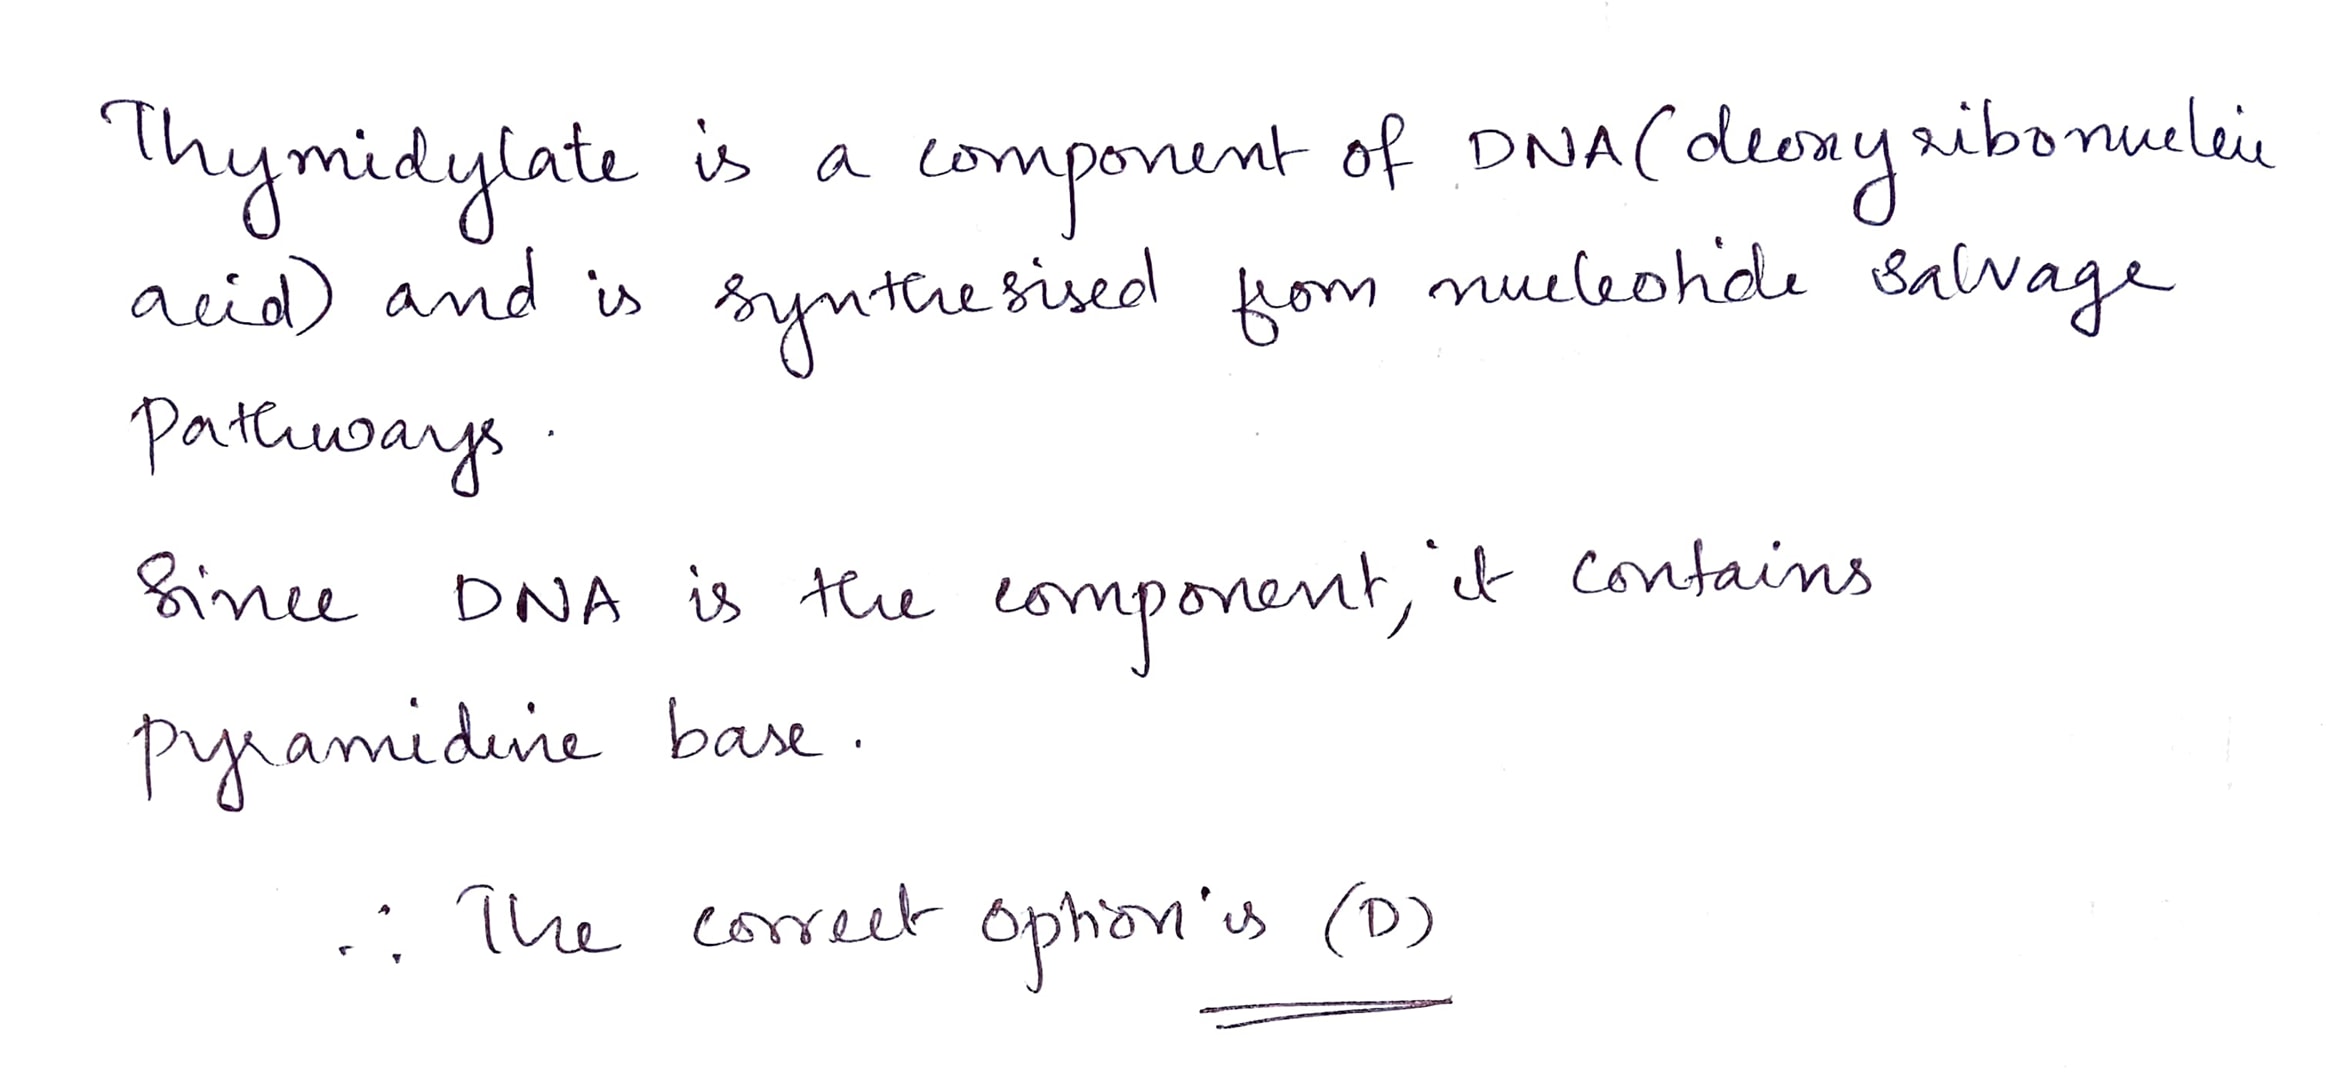 Thymidylate is a component of DNA (deoxyribonucleic
acid) and is synthesised from nucleotide salvage
pathways.
Since DNA is the component, it contains
pyramidine base.
∴ The correct option is (D)